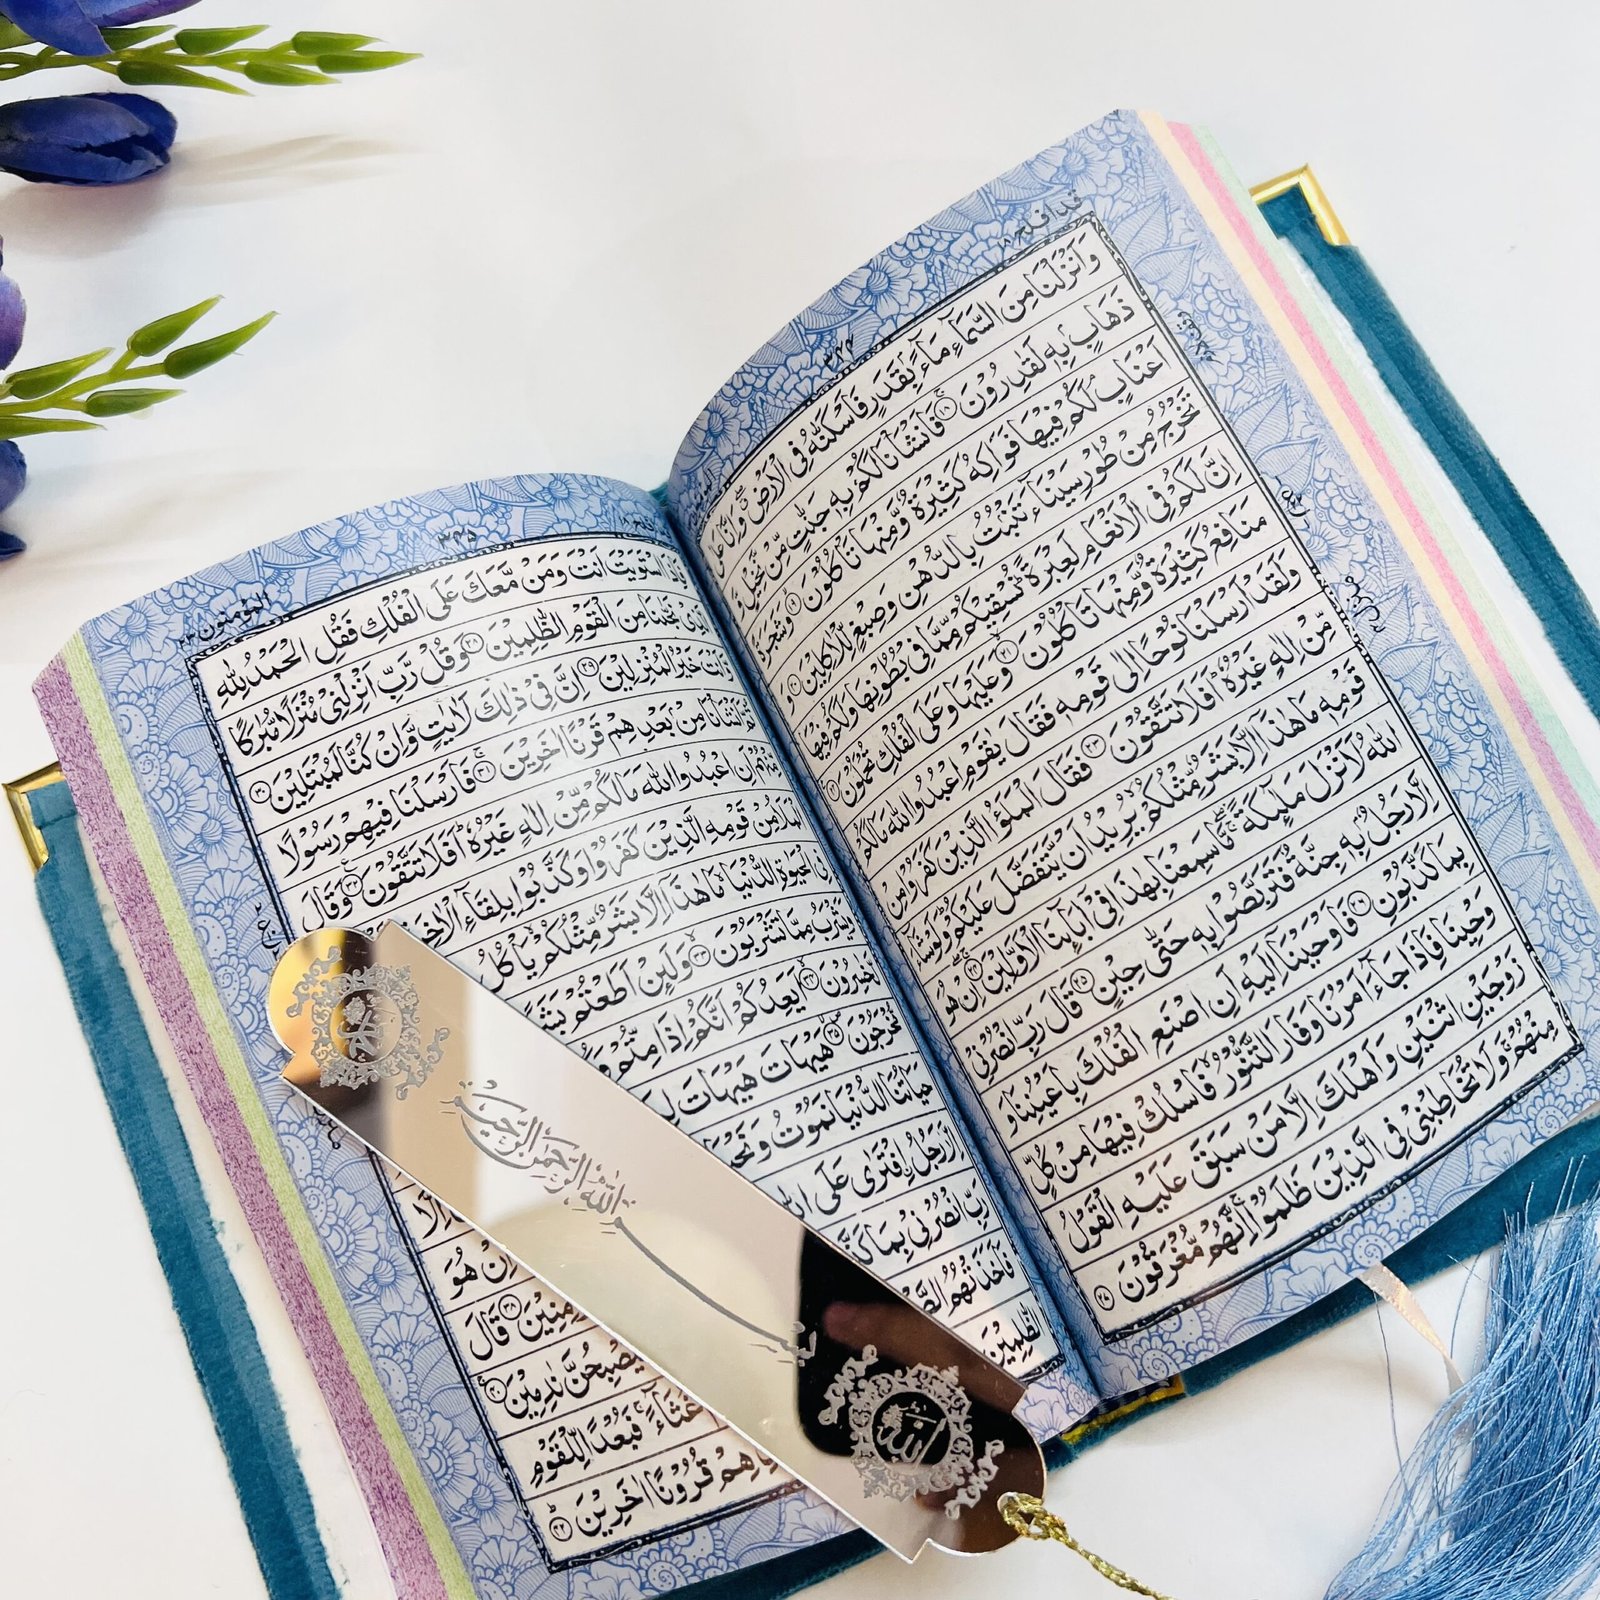 قد افلح ١٨
٣٤٤
وَاَنْزَلْنَا مِنَ السَّمَآءِ مَآءًۢ بِقَدَرٍ فَاَسْكَنّٰهُ فِی الْاَرْضِ ۖ وَاِنَّا عَلٰی
ذَهَابٍۭ بِهٖ لَقٰدِرُوْنَ ۝١٨ فَاَنْشَاْنَا لَكُمْ بِهٖ جَنّٰتٍ مِّنْ نَّخِیْلٍ وَّ
اَعْنَابٍ ۘ لَكُمْ فِیْهَا فَوَاكِهُ كَثِیْرَةٌ وَّمِنْهَا تَاْكُلُوْنَ ۝١٩ وَشَجَرَةً
تَخْرُجُ مِنْ طُوْرِ سَیْنَآءَ تَنْۢبُتُ بِالدُّهْنِ وَصِبْغٍ لِّلْاٰكِلِیْنَ ۝٢٠ وَ
اِنَّ لَكُمْ فِی الْاَنْعَامِ لَعِبْرَةً ؕ نُسْقِیْكُمْ مِّمَّا فِیْ بُطُوْنِهَا وَلَكُمْ فِیْهَا
مَنَافِعُ كَثِیْرَةٌ وَّمِنْهَا تَاْكُلُوْنَ ۝٢١ وَعَلَیْهَا وَعَلَی الْفُلْكِ تُحْمَلُوْنَ ۝٢٢
وَلَقَدْ اَرْسَلْنَا نُوْحًا اِلٰی قَوْمِهٖ فَقَالَ یٰقَوْمِ اعْبُدُوا اللّٰهَ مَا لَكُمْ
مِّنْ اِلٰهٍ غَیْرُهٗ ؕ اَفَلَا تَتَّقُوْنَ ۝٢٣ فَقَالَ الْمَلَؤُا الَّذِیْنَ كَفَرُوْا مِنْ
قَوْمِهٖ مَا هٰذَاۤ اِلَّا بَشَرٌ مِّثْلُكُمْ ۙ یُرِیْدُ اَنْ یَّتَفَضَّلَ عَلَیْكُمْ ؕ وَلَوْ شَآءَ
اللّٰهُ لَاَنْزَلَ مَلٰٓئِكَةً ۖۚ مَّا سَمِعْنَا بِهٰذَا فِیْۤ اٰبَآئِنَا الْاَوَّلِیْنَ ۝٢٤ اِنْ هُوَ
اِلَّا رَجُلٌۢ بِهٖ جِنَّةٌ فَتَرَبَّصُوْا بِهٖ حَتّٰی حِیْنٍ ۝٢٥ قَالَ رَبِّ انْصُرْنِیْ
بِمَا كَذَّبُوْنِ ۝٢٦ فَاَوْحَیْنَاۤ اِلَیْهِ اَنِ اصْنَعِ الْفُلْكَ بِاَعْیُنِنَا وَ
وَحْیِنَا فَاِذَا جَآءَ اَمْرُنَا وَفَارَ التَّنُّوْرُ ۙ فَاسْلُكْ فِیْهَا مِنْ كُلٍّ
زَوْجَیْنِ اثْنَیْنِ وَاَهْلَكَ اِلَّا مَنْ سَبَقَ عَلَیْهِ الْقَوْلُ
مِنْهُمْ ۚ وَلَا تُخَاطِبْنِیْ فِی الَّذِیْنَ ظَلَمُوْا ۚ اِنَّهُمْ مُّغْرَقُوْنَ ۝٢٧
المؤمنون ٢٣
٣٤٥
افلح ١٨
فَاِذَا اسْتَوَیْتَ اَنْتَ وَمَنْ مَّعَكَ عَلَی الْفُلْكِ فَقُلِ الْحَمْدُ لِلّٰهِ
الَّذِیْ نَجّٰنَا مِنَ الْقَوْمِ الظّٰلِمِیْنَ ۝٢٨ وَقُلْ رَّبِّ اَنْزِلْنِیْ مُنْزَلًا مُّبٰرَكًا
وَّاَنْتَ خَیْرُ الْمُنْزِلِیْنَ ۝٢٩ اِنَّ فِیْ ذٰلِكَ لَاٰیٰتٍ وَّاِنْ كُنَّا لَمُبْتَلِیْنَ ۝٣٠
ثُمَّ اَنْشَاْنَا مِنْۢ بَعْدِهِمْ قَرْنًا اٰخَرِیْنَ ۝٣١ فَاَرْسَلْنَا فِیْهِمْ رَسُوْلًا
مِّنْهُمْ اَنِ اعْبُدُوا اللّٰهَ مَا لَكُمْ مِّنْ اِلٰهٍ غَیْرُهٗ ؕ اَفَلَا تَتَّقُوْنَ ۝٣٢ وَقَالَ
الْمَلَاُ مِنْ قَوْمِهِ الَّذِیْنَ كَفَرُوْا وَكَذَّبُوْا بِلِقَآءِ الْاٰخِرَةِ
فِی الْحَیٰوةِ الدُّنْیَا ۙ مَا هٰذَاۤ اِلَّا بَشَرٌ مِّثْلُكُمْ ۙ یَاْكُلُ
وَیَشْرَبُ مِمَّا تَشْرَبُوْنَ ۝٣٣ وَلَئِنْ اَطَعْتُمْ بَشَرًا
لَّخٰسِرُوْنَ ۝٣٤ اَیَعِدُكُمْ اَنَّكُمْ اِذَا مِتُّمْ وَ
مُّخْرَجُوْنَ ۝٣٥ هَیْهَاتَ هَیْهَاتَ لِ
حَیَاتُنَا الدُّنْیَا نَمُوْتُ وَنَحْیَا اِلَّا
اِلَّا رَجُلُ افْتَرٰی عَلَی اللّٰهِ اِنْ هُوَ
رَبِّ انْصُرْنِیْ بِمَا كَذَّ قَالَ
فَاَخَذَتْهُمُ الصَّ یُصْبِحُنَّ نٰدِمِیْنَ ۝٤٠
الظّٰلِمِیْنَ غُثَآءً ۚ فَبُعْدًا لِّلْقَوْمِ
هِمْ قُرُوْنًا اٰخَرِیْنَ ۝٤٢
بسم الله الرحمن الرحيم
محمد
الله